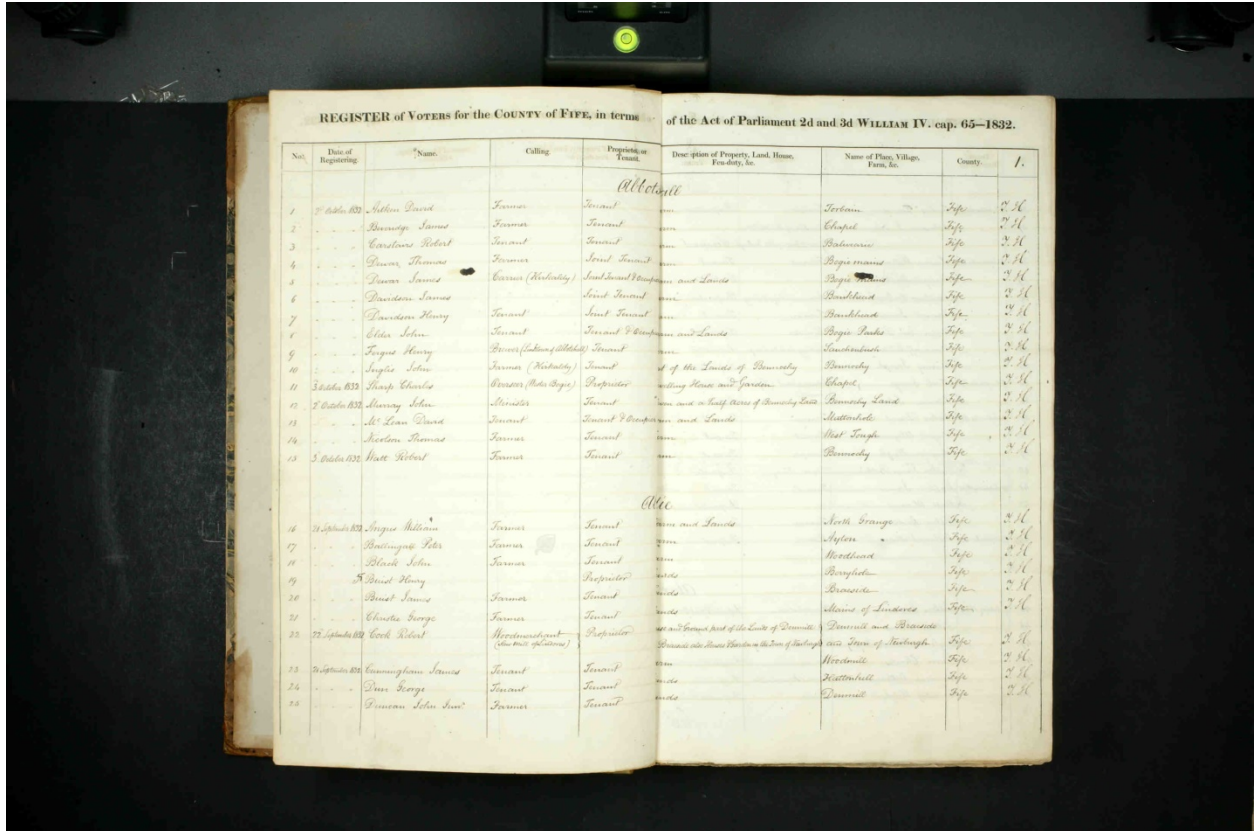 REGISTER of VOTERS for the COUNTY of FIFE, in terms of the Act of Parliament 2d and 3d WILLIAM IV. cap. 65—1832.
No. Date of Registering. Name. Calling. Proprietor, or Tenant. Description of Property, Land, House, Feu-duty, &c. Name of Place, Village, Farm, &c. County. 1.
Abbotshall
1 2d October 1832 Aitken David Farmer Tenant Torbain Fife T. H.
2 Burridge James Farmer Tenant Chapel Fife T. H.
3 Carstairs Robert Tenant Tenant Balwearie Fife T. H.
4 Dewar Thomas Farmer Joint Tenant Begie mains Fife T. H.
5 Dewar James Carrier (Kirkcaldy) Joint Tenant & and Lands Begie Fife T. H.
6 Davidson James Joint Tenant Bankhead Fife T. H.
7 Davidson Henry Tenant Joint Tenant Bankhead Fife T. H.
8 Elder John Tenant Tenant & and Lands Bogie Parks Fife T. H.
9 Fergus Henry Tenant Fife T. H.
10 Inglis John Farmer (Kirkcaldy) Tenant of the Lands of Bennochy Bennochy Fife T. H.
11 3 October 1832 Sharp Charles Overseer Proprietor House and Garden Chapel Fife T. H.
12 2d October 1832 Murray John Minister Tenant and a half Acres of Bennochy Land Bennochy Land Fife T. H.
13 McLean David Tenant Tenant & and Lands Muttonhole Fife T. H.
14 Nicolson Thomas Farmer Tenant West Tough Fife T. H.
15 3 October 1832 Watt Robert Farmer Tenant Bennochy Fife T. H.
Abdie
16 September 1832 Angus William Farmer Tenant and Lands North Grange Fife T. H.
17 Ballingall Peter Farmer Tenant Ayton Fife T. H.
18 Black John Farmer Tenant Woodhead Fife T. H.
19 Buist Henry Proprietor Berryhole Fife T. H.
20 Buist James Farmer Tenant Braeside Fife T. H.
21 Christie George Farmer Tenant Mains of Lindores Fife T. H.
22 September 1832 Cook Robert Woodmerchant Proprietor and Ground part of the Lands of Denmill Denmill and Braeside
Braeside also Houses & Garden in the Town of Newburgh and Town of Newburgh Fife T. H.
23 September 1832 Cunningham James Tenant Tenant Woodmill Fife T. H.
24 Dun George Tenant Tenant Hattonhill Fife T. H.
25 Duncan John Junr. Farmer Tenant Denmill Fife T. H.